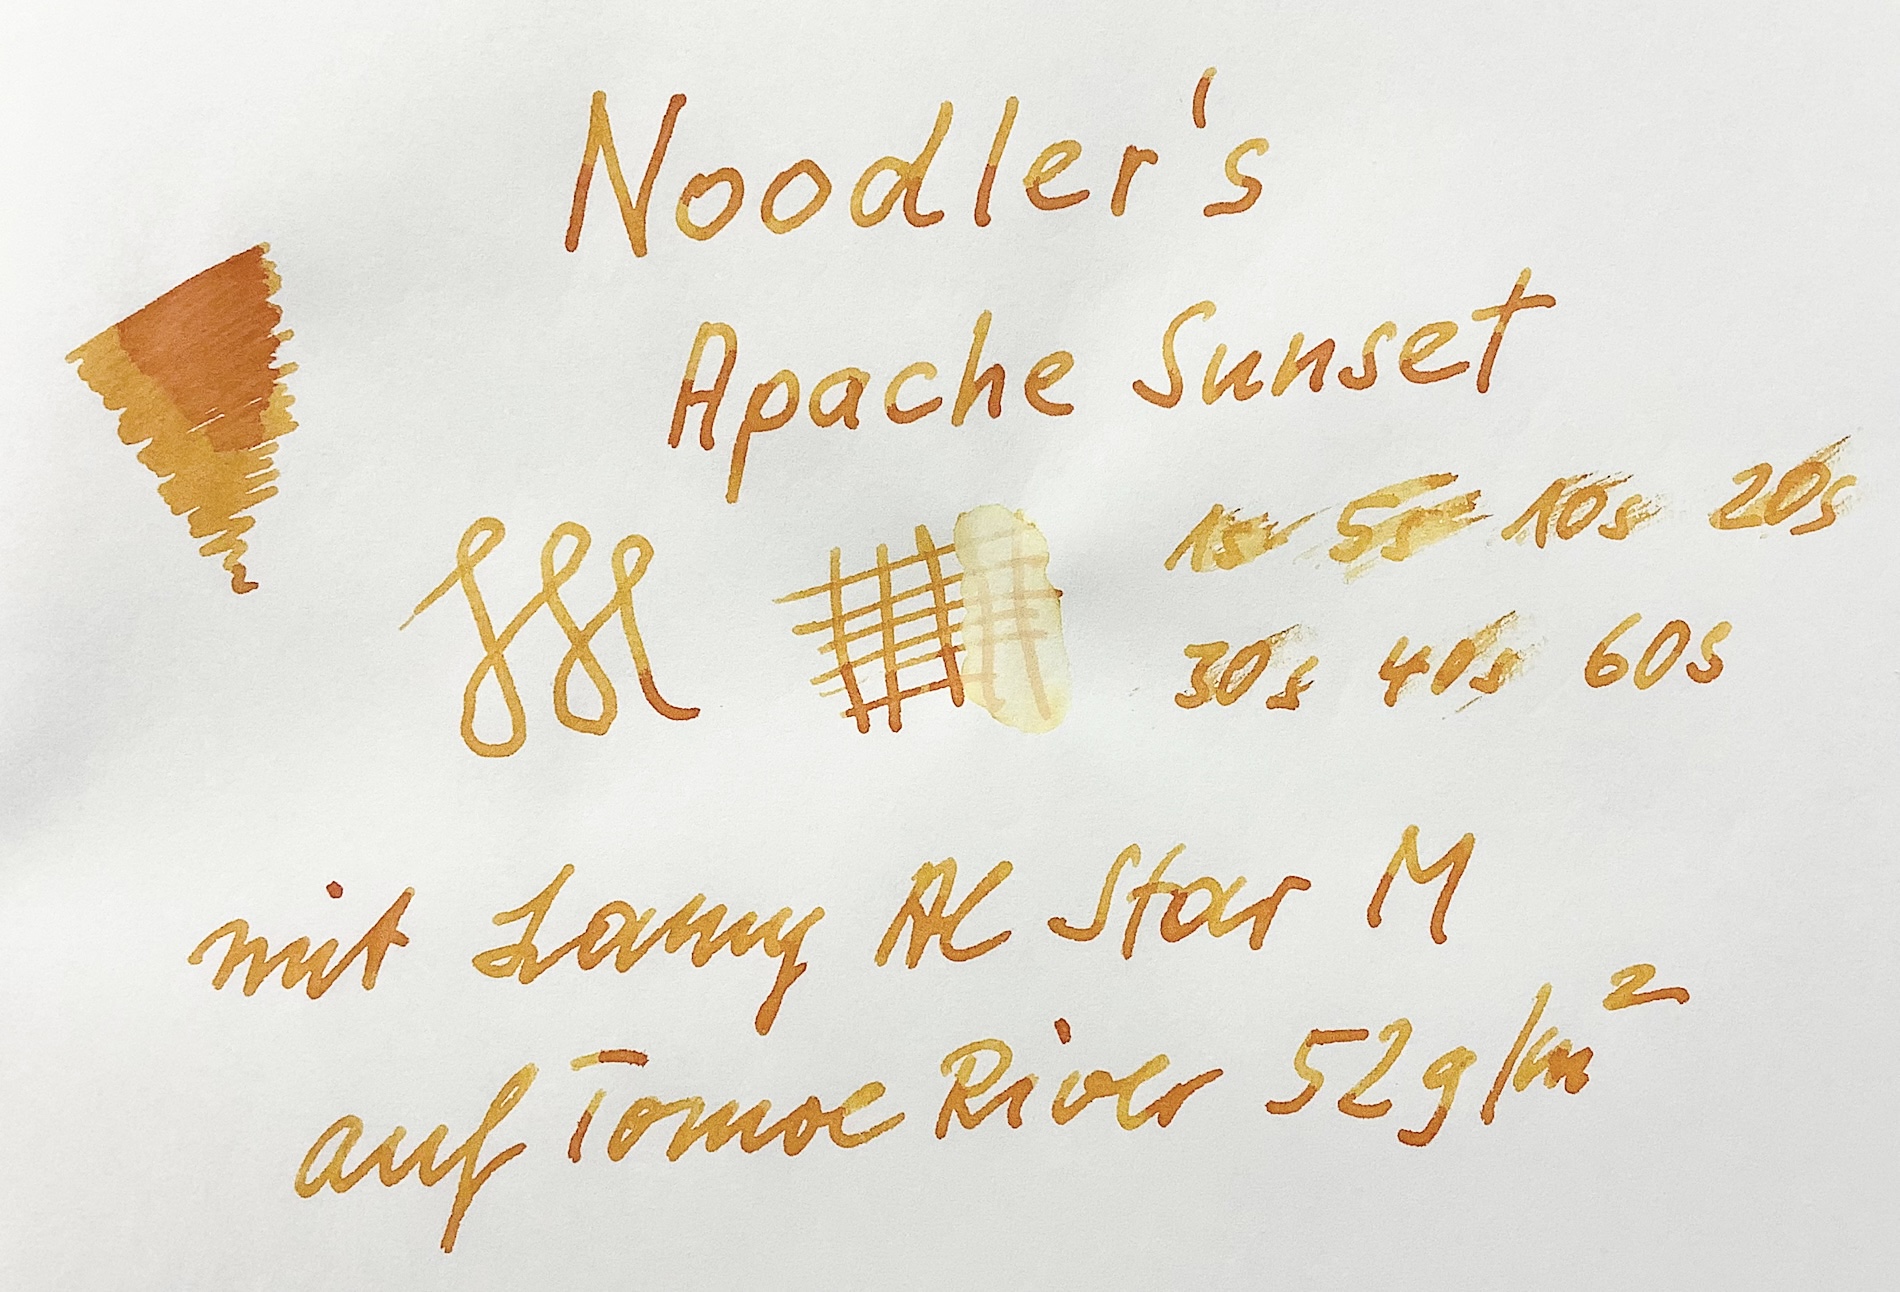 Noodler's
Apache Sunset
1s 5s 10s 20s
30s 40s 60s
mit Lamy Al Star M
auf Tomoe River 52g/m²